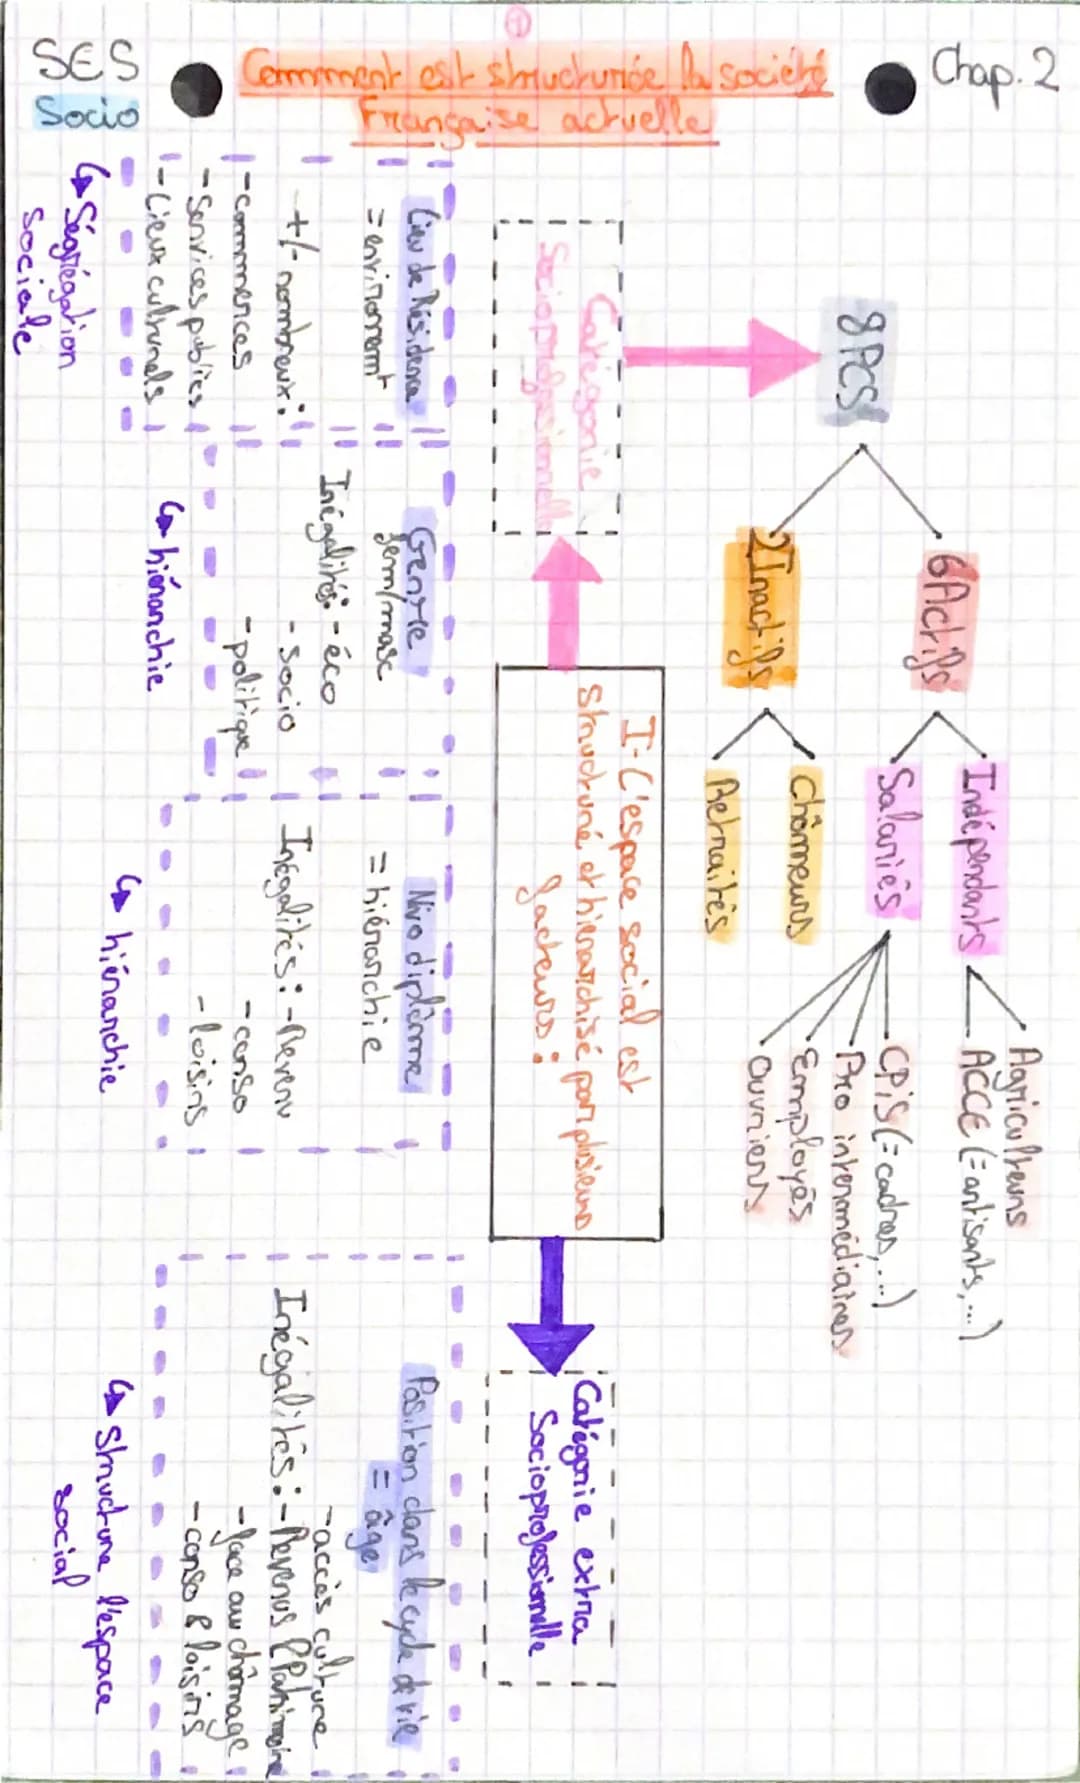 ①
SES
Socio
Comment est structurée la société
Française actuelle
Chap. 2
I - L'espace social est
structuré et hiérarchisé par plusieurs
facteurs :
Catégorie
Socioprofessionnelle
8 PCS
6 Actifs
Indépendants
Agriculteurs
ACCE (= artisants, ...)
Salariés
CPIS (= cadres, ...)
Pro intermédiaires
Employés
Ouvriers
2 Inactifs
Chômeurs
Retraités
Catégorie extra
Socioprofessionnelle
Lieu de Résidence
= environnemt
+/- nombreux :
- commerces
- Services publics
- Lieux culturels
↳ Ségrégation
sociale
Genre
fem/masc
Inégalités : - éco
- socio
- politique
↳ hiérarchie
Nivo diplôme
= hiérarchie
Inégalités : - Revenu
- conso
- loisirs
↳ hiérarchie
Position dans le cycle de vie
= âge
- accès culture
Inégalités : - Revenus & Patrimoine
- face au chômage
- conso & loisirs
↳ structure l'espace
social